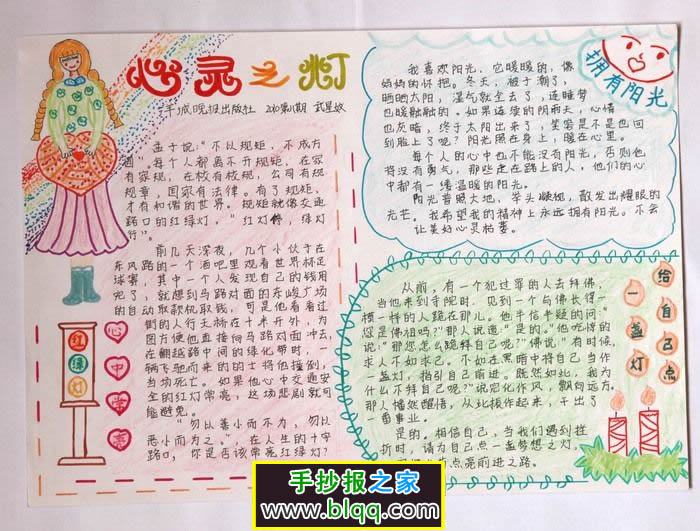 心灵之灯
羊城晚报出版社 2010第1期
孟子说:"不以规矩,不成方
圆"每个人都离不开规矩,在家
有家规,在校有校规,公司有规
规章,国家有法律。有了规矩,
才有和谐的世界。规矩就像交通
路口的红绿灯,"红灯停,绿灯
行"。
前几天深夜,几个小伙子在
东风路的一个酒吧里观看世界杯足
球赛,其中一个人发现自己的钱用
完了,就想到马路对面的东峻广场
的自动取款机取钱,可是他看着过
街的人行天桥在十米开外,为
图方便他直接向马路对面冲去,
在翻越路中间的绿化带时,一
辆飞驰而来的的士将他撞倒,
当场死亡。如果他心中交通安
全的红灯常亮,这场悲剧就可
能避免。
"勿以善小而不为,勿以
恶小而为之。"在人生的十字
路口,你是否该常亮红绿灯?
红
绿
灯
心
中
常
亮
拥有阳光
我喜欢阳光,它暖暖的,像
妈妈的怀抱。冬天,被子潮了,
晒晒太阳,湿气就全去了,连睡梦
也暖融融的。如果连续的阴雨天,心情
也灰暗,终于太阳出来了,笑容是不是也回
到脸上了呢?阳光照在身上,暖在心里。
每个人的心中也不能没有阳光,否则他
将没有勇气,那些走在路上的人,他们的心
中都有一缕温暖的阳光。
阳光普照大地,举头凝视,散发出耀眼的
光芒。我希望我的精神上永远拥有阳光。不会
让美好心灵枯萎。
给自己点
一盏灯
从前,有一个犯过罪的人去拜佛,
当他来到寺院时,见到一个与佛长得一
模一样的人跪在那儿。他半信半疑的问:"
您是佛祖吗?"那人说道:"是的。"他吃惊的
说:"那您怎么跪拜自己呢?"佛说:"有时候,
求人不如求己。不如在黑暗中将自己当作
一盏灯,指引自己前进。既然如此,我为
什么不拜自己呢?"说完化作风,飘向远方。
那人幡然醒悟,从此振作起来,干出了
一番事业。
是的。相信自己,当我们遇到挫
折时,请为自己点一盏梦想之灯,
点亮前进之路。
手抄报之家
www.blqq.com